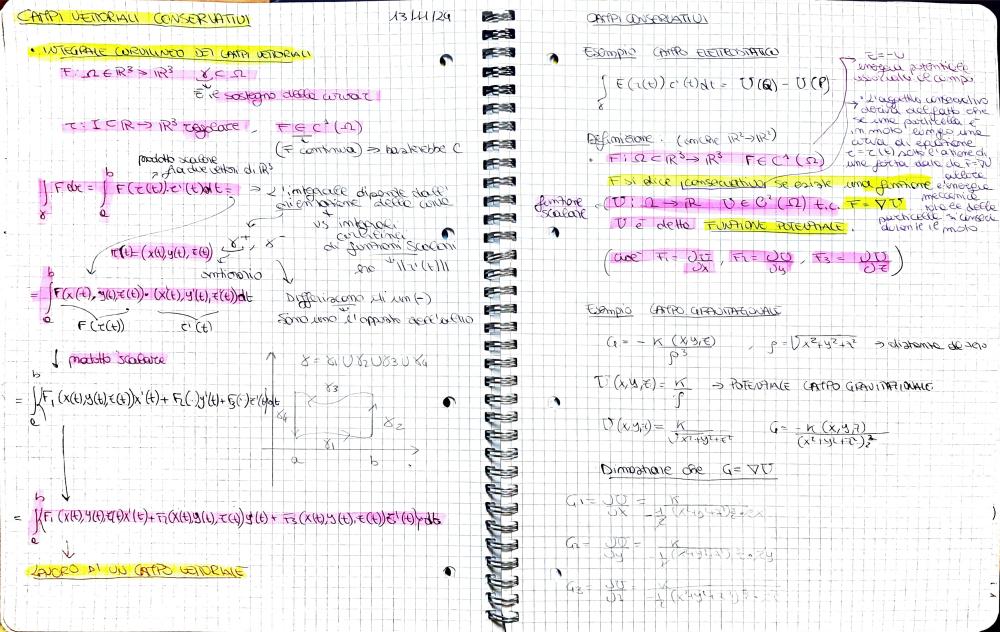 CAMPI VETTORIALI CONSERVATIVI 13/11/24
• INTEGRALE CURVILINEO DEI CAMPI VETTORIALI
F: Ω ⊆ ℝ³ → ℝ³ γ ⊂ Ω
è sostegno della curva τ
τ: I ⊂ ℝ → ℝ³ regolare, F ∈ C¹(Ω)
(F continua) → basterebbe C
prodotto scalare
fra due vettori di ℝ³
∫γ F dτ = ∫ₐᵇ F(τ(t))·τ'(t) dt =
→ L'integrale dipende dall'
orientazione della curva
vs integrali
curvilinei
di funzioni scalari
||τ'(t)||
γ⁺, γ⁻
antiorario
τ(t) = (x(t), y(t), z(t))
= ∫ₐᵇ F(x(t), y(t), z(t))·(x'(t), y'(t), z'(t)) dt
F(τ(t)) τ'(t)
Differiscono di un (-)
sono uno l'opposto dell'altro
↓ prodotto scalare
γ = γ1 ∪ γ2 ∪ γ3 ∪ γ4
γ3
γ4
γ2
γ1
a b
= ∫ₐᵇ (F₁(x(t), y(t), z(t))x'(t) + F₂(·)y'(t) + F₃(·)z'(t)) dt
= ∫ₐᵇ (F₁(x(t), y(t), z(t))x'(t) + F₂(x(t), y(t), z(t))y'(t) + F₃(x(t), y(t), z(t))z'(t)) dt
↓
LAVORO DI UN CAMPO VETTORIALE
CAMPI CONSERVATIVI
Esempio CAMPO ELETTROSTATICO
∫γ E(τ(t)) τ'(t) dt = U(Q) - U(P)
E = -U
energia potenziale
→ L'aggettivo conservativo
deriva dal fatto che
se una particella è
in moto lungo una
curva di equazione
τ = τ(t) sotto l'azione di
una forza data da F = ∇U
allora
l'energia
meccanica
totale della
particella si conserva
durante il moto
Definizione (anche ℝ² → ℝ²)
• F: Ω ⊂ ℝ³ → ℝ³ F ∈ C¹(Ω)
F si dice conservativo se esiste una funzione
funzione
scalare
U: Ω → ℝ U ∈ C¹(Ω) t.c. F = ∇U
U è detto FUNZIONE POTENZIALE.
(cioè F₁ = ∂U/∂x, F₂ = ∂U/∂y, F₃ = ∂U/∂z)
Esempio CAMPO GRAVITAZIONALE
G = - K (x,y,z)/ρ³ , ρ = √x²+y²+z² → distanza da zero
U(x,y,z) = K/ρ → POTENZIALE CAMPO GRAVITAZIONALE
U(x,y,z) = K/√x²+y²+z² G = -K (x,y,z)/(x²+y²+z²)^3/2
Dimostrare che G = ∇U
G₁ = ∂U/∂x = K
G₂ = ∂U/∂y = K
G₃ = ∂U/∂z = K